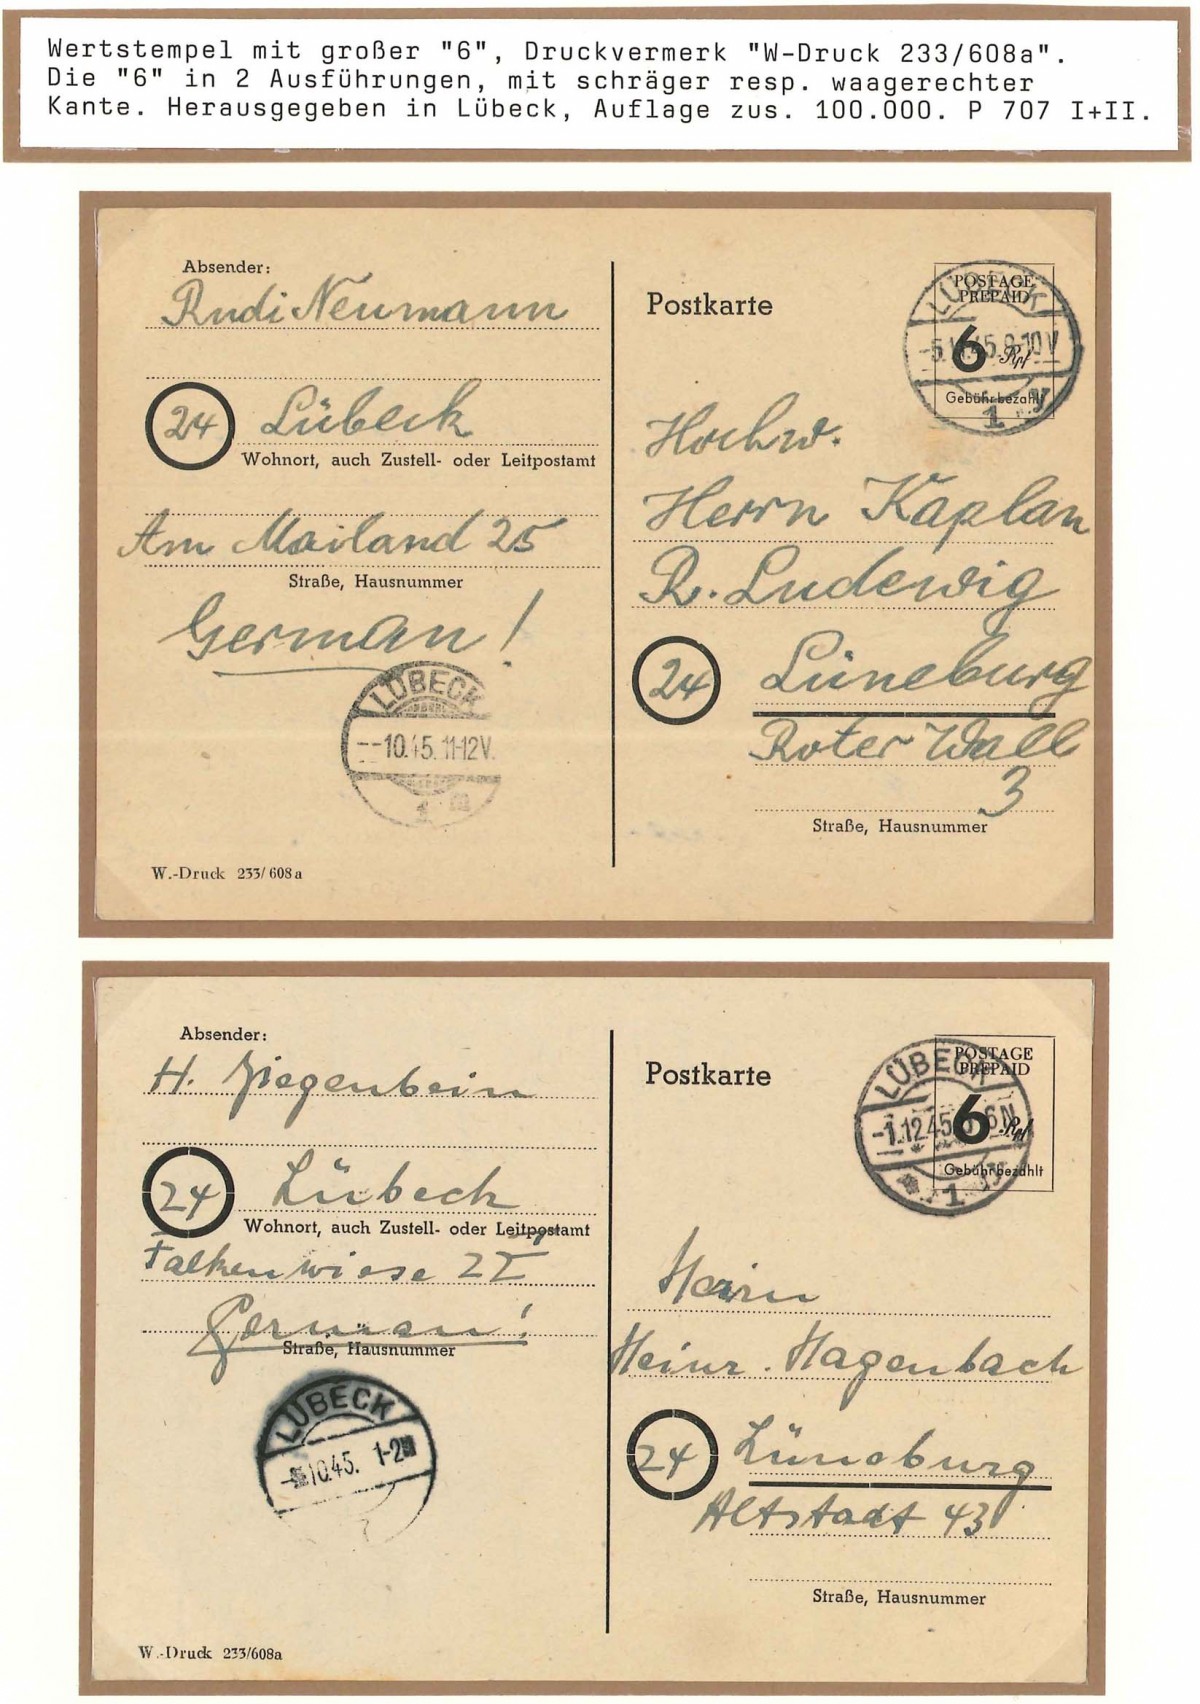 Wertstempel mit großer "6", Druckvermerk "W-Druck 233/608a".
Die "6" in 2 Ausführungen, mit schräger resp. waagerechter
Kante. Herausgegeben in Lübeck, Auflage zus. 100.000. P 707 I+II.
Absender:
Rudi Neumann
24 Lübeck
Wohnort, auch Zustell- oder Leitpostamt
Am Mailand 25
Straße, Hausnummer
German!
LÜBECK
10.45.11-12V.
W.-Druck 233/608a
Postkarte
POSTAGE
PREPAID
6 Rpf
Gebühr bezahlt
LÜBECK
1 y
Hochw.
Herrn Kaplan
R. Ludewig
24 Lüneburg
Roter Wall
3
Straße, Hausnummer
Absender:
H. Ziegenbein
24 Lübeck
Wohnort, auch Zustell- oder Leitpostamt
Falkenwiese
German!
Straße, Hausnummer
LÜBECK
10.45. 1-2
W.-Druck 233/608a
Postkarte
POSTAGE
PREPAID
6 Rpf
Gebühr bezahlt
LÜBECK
-1.12.45
1
Herrn
Heinr. Hagenbach
24 Lüneburg
Altstadt 43
Straße, Hausnummer